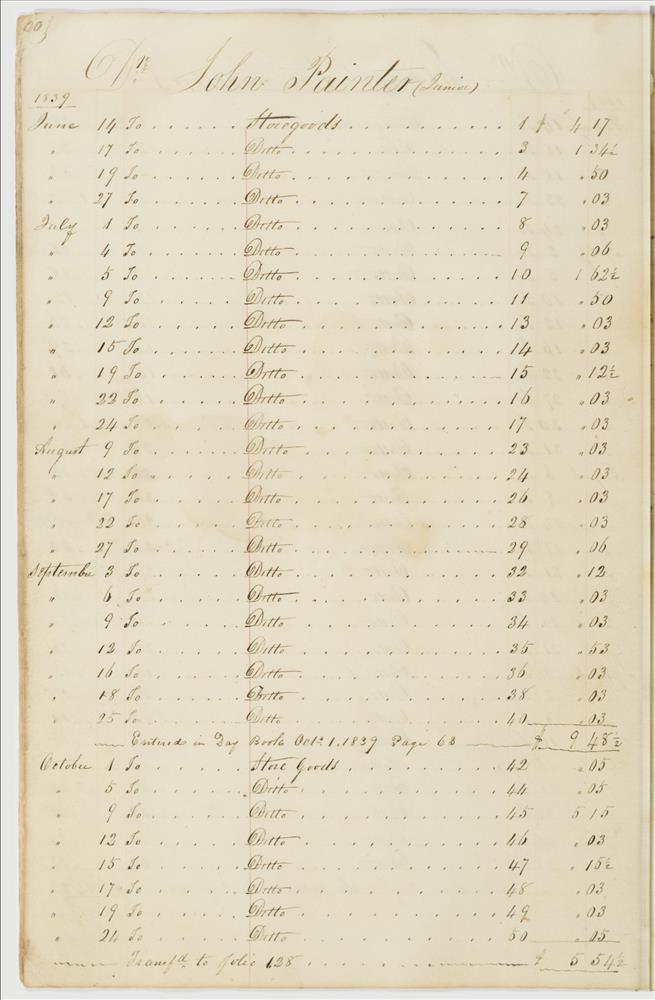 Dr. John Painter (Junior)
1839
June 14 To Storegoods 1 $ 4 17
" 17 To Ditto 3 1 34½
" 19 To Ditto 4 " 50
" 27 To Ditto 7 " 03
July 1 To Ditto 8 " 03
" 4 To Ditto 9 " 06
" 5 To Ditto 10 1 62½
" 9 To Ditto 11 " 50
" 12 To Ditto 13 " 03
" 15 To Ditto 14 " 03
" 19 To Ditto 15 " 12½
" 22 To Ditto 16 " 03
" 24 To Ditto 17 " 03
August 9 To Ditto 23 " 03
" 12 To Ditto 24 " 03
" 17 To Ditto 26 " 03
" 22 To Ditto 28 " 03
" 27 To Ditto 29 " 06
September 3 To Ditto 32 " 12
" 6 To Ditto 33 " 03
" 9 To Ditto 34 " 03
" 12 To Ditto 35 " 53
" 16 To Ditto 36 " 03
" 18 To Ditto 38 " 03
" 25 To Ditto 40 " 03
Entered in Day Book Octr. 1. 1839 Page 63 $ 9 48½
October 1 To Store Goods 42 " 05
" 5 To Ditto 44 " 05
" 9 To Ditto 45 5 15
" 12 To Ditto 46 " 03
" 15 To Ditto 47 " 15½
" 17 To Ditto 48 " 03
" 19 To Ditto 49 " 03
" 24 To Ditto 50 " 05
Transfd. to folio 128 $ 5 54½